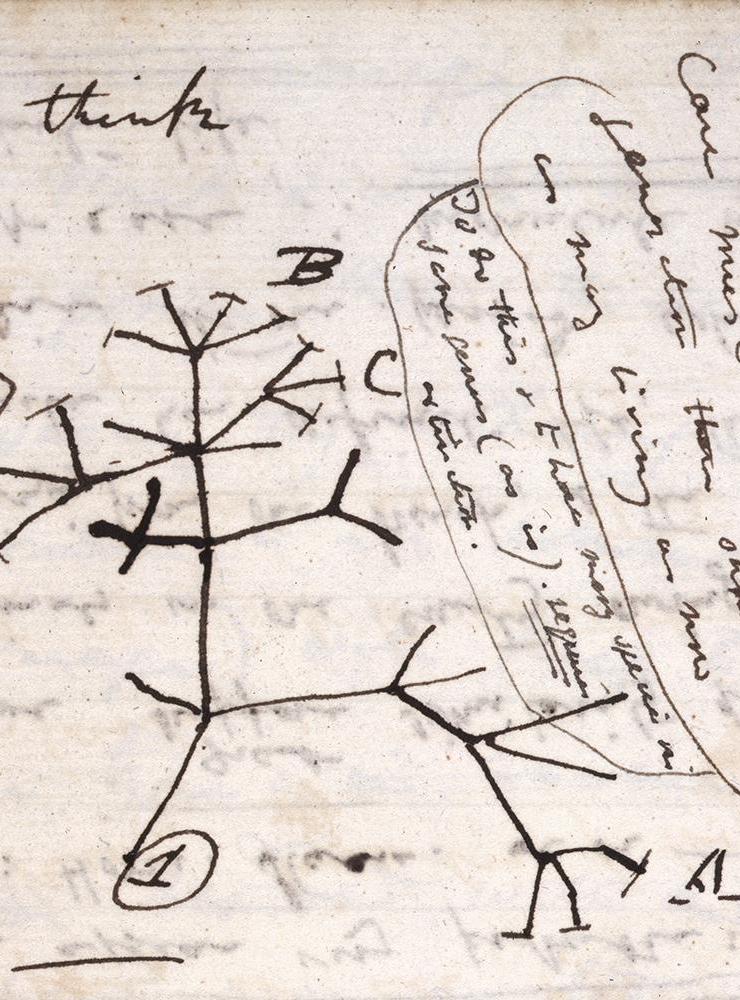 think
Case must
generation then should
as many living as now
To do this & to have many species in
same genus (as is). requires
extinction.
B
C
A
1